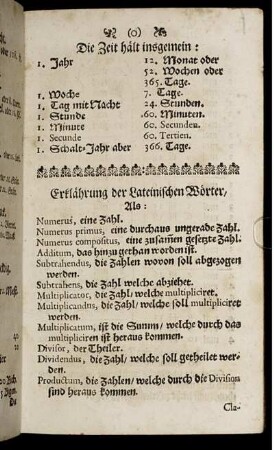 (0)
Die Zeit hält insgemein:
1. Jahr 12. Monat oder
52. Wochen oder
365. Tage.
1. Woche 7. Tage.
1. Tag mit Nacht 24. Stunden.
1. Stunde 60. Minuten.
1. Minute 60. Secunden.
1. Secunde 60. Tertien.
1. Schalt-Jahr aber 366. Tage.
Erklährung der Lateinischen Wörter,
Als:
Numerus, eine Zahl.
Numerus primus, eine durchaus ungerade Zahl.
Numerus compositus, eine zusamen gesetzte Zahl.
Additum, das hinzu gethan worden ist.
Subtrahendus, die Zahlen wovon soll abgezogen
werden.
Subtrahens, die Zahl welche abziehet.
Multiplicator, die Zahl/ welche multipliciret.
Multiplicandns, die Zahl/ welche soll multipliciret
werden.
Multiplicatum, ist die Summ/ welche durch das
multipliciren ist heraus kommen.
Divisor, der Theiler.
Dividendus, die Zahl/ welche soll getheilet wer-
den.
Productum, die Zahlen/ welche durch die Division
sind heraus kommen.
Cla-